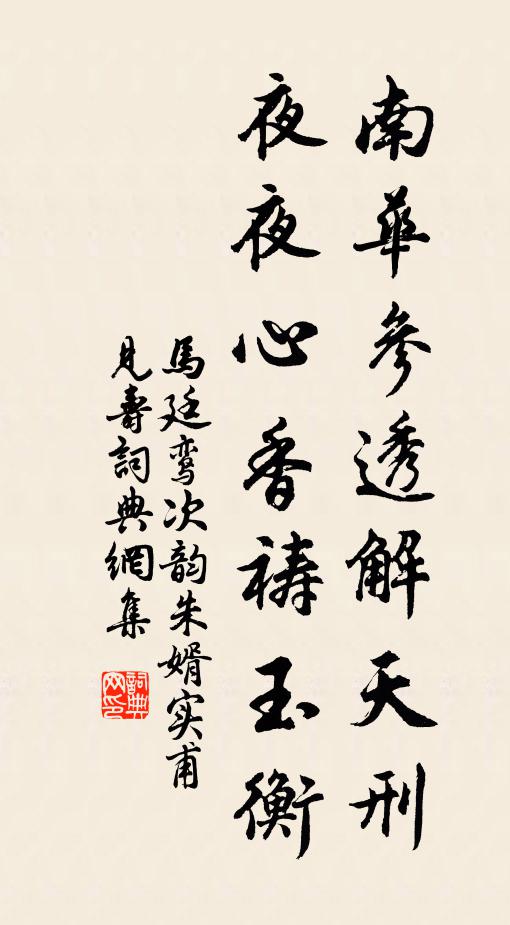 南華參透解天刑
夜夜心香祷玉衡
馬廷鸾次韵朱婿实甫
見壽詞典網集
詞典
网印